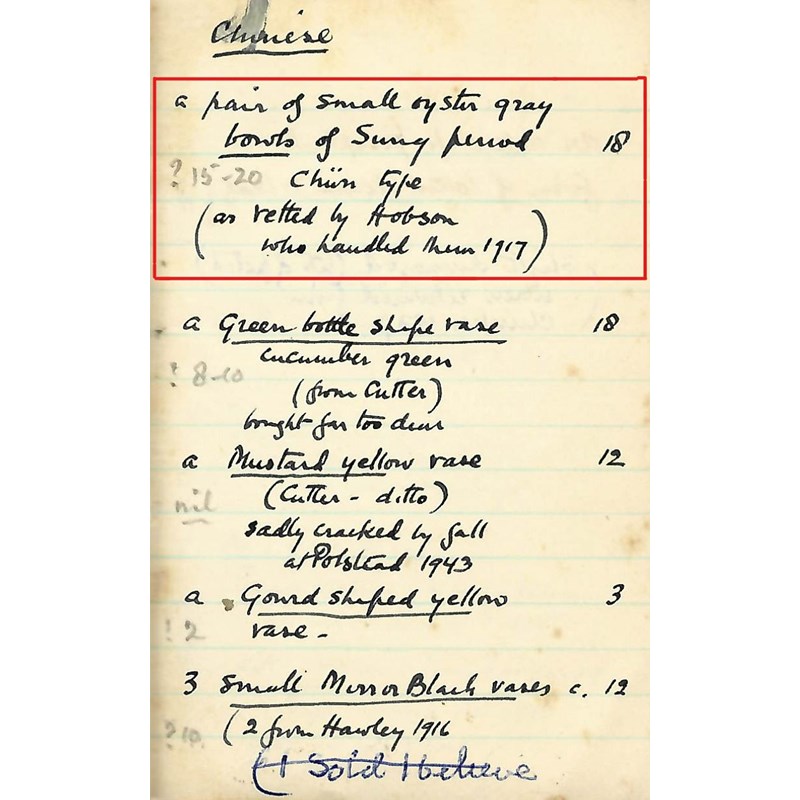 Chinese
a pair of small oyster gray
bowls of Sung period 18
? 15-20 Chün type
(as vetted by Hobson
who handled them 1917)
a Green bottle shape vase 18
cucumber green
? 8-10
(from Cutter)
bought far too dear
a Mustard yellow vase 12
(Cutter - ditto)
nil
sadly cracked by fall
at Polstead 1943
a Gourd shaped yellow 3
? 2 vase -
3 small Mirror Black vases c. 12
? 10 (2 from Hawley 1916
(1 Sold I believe